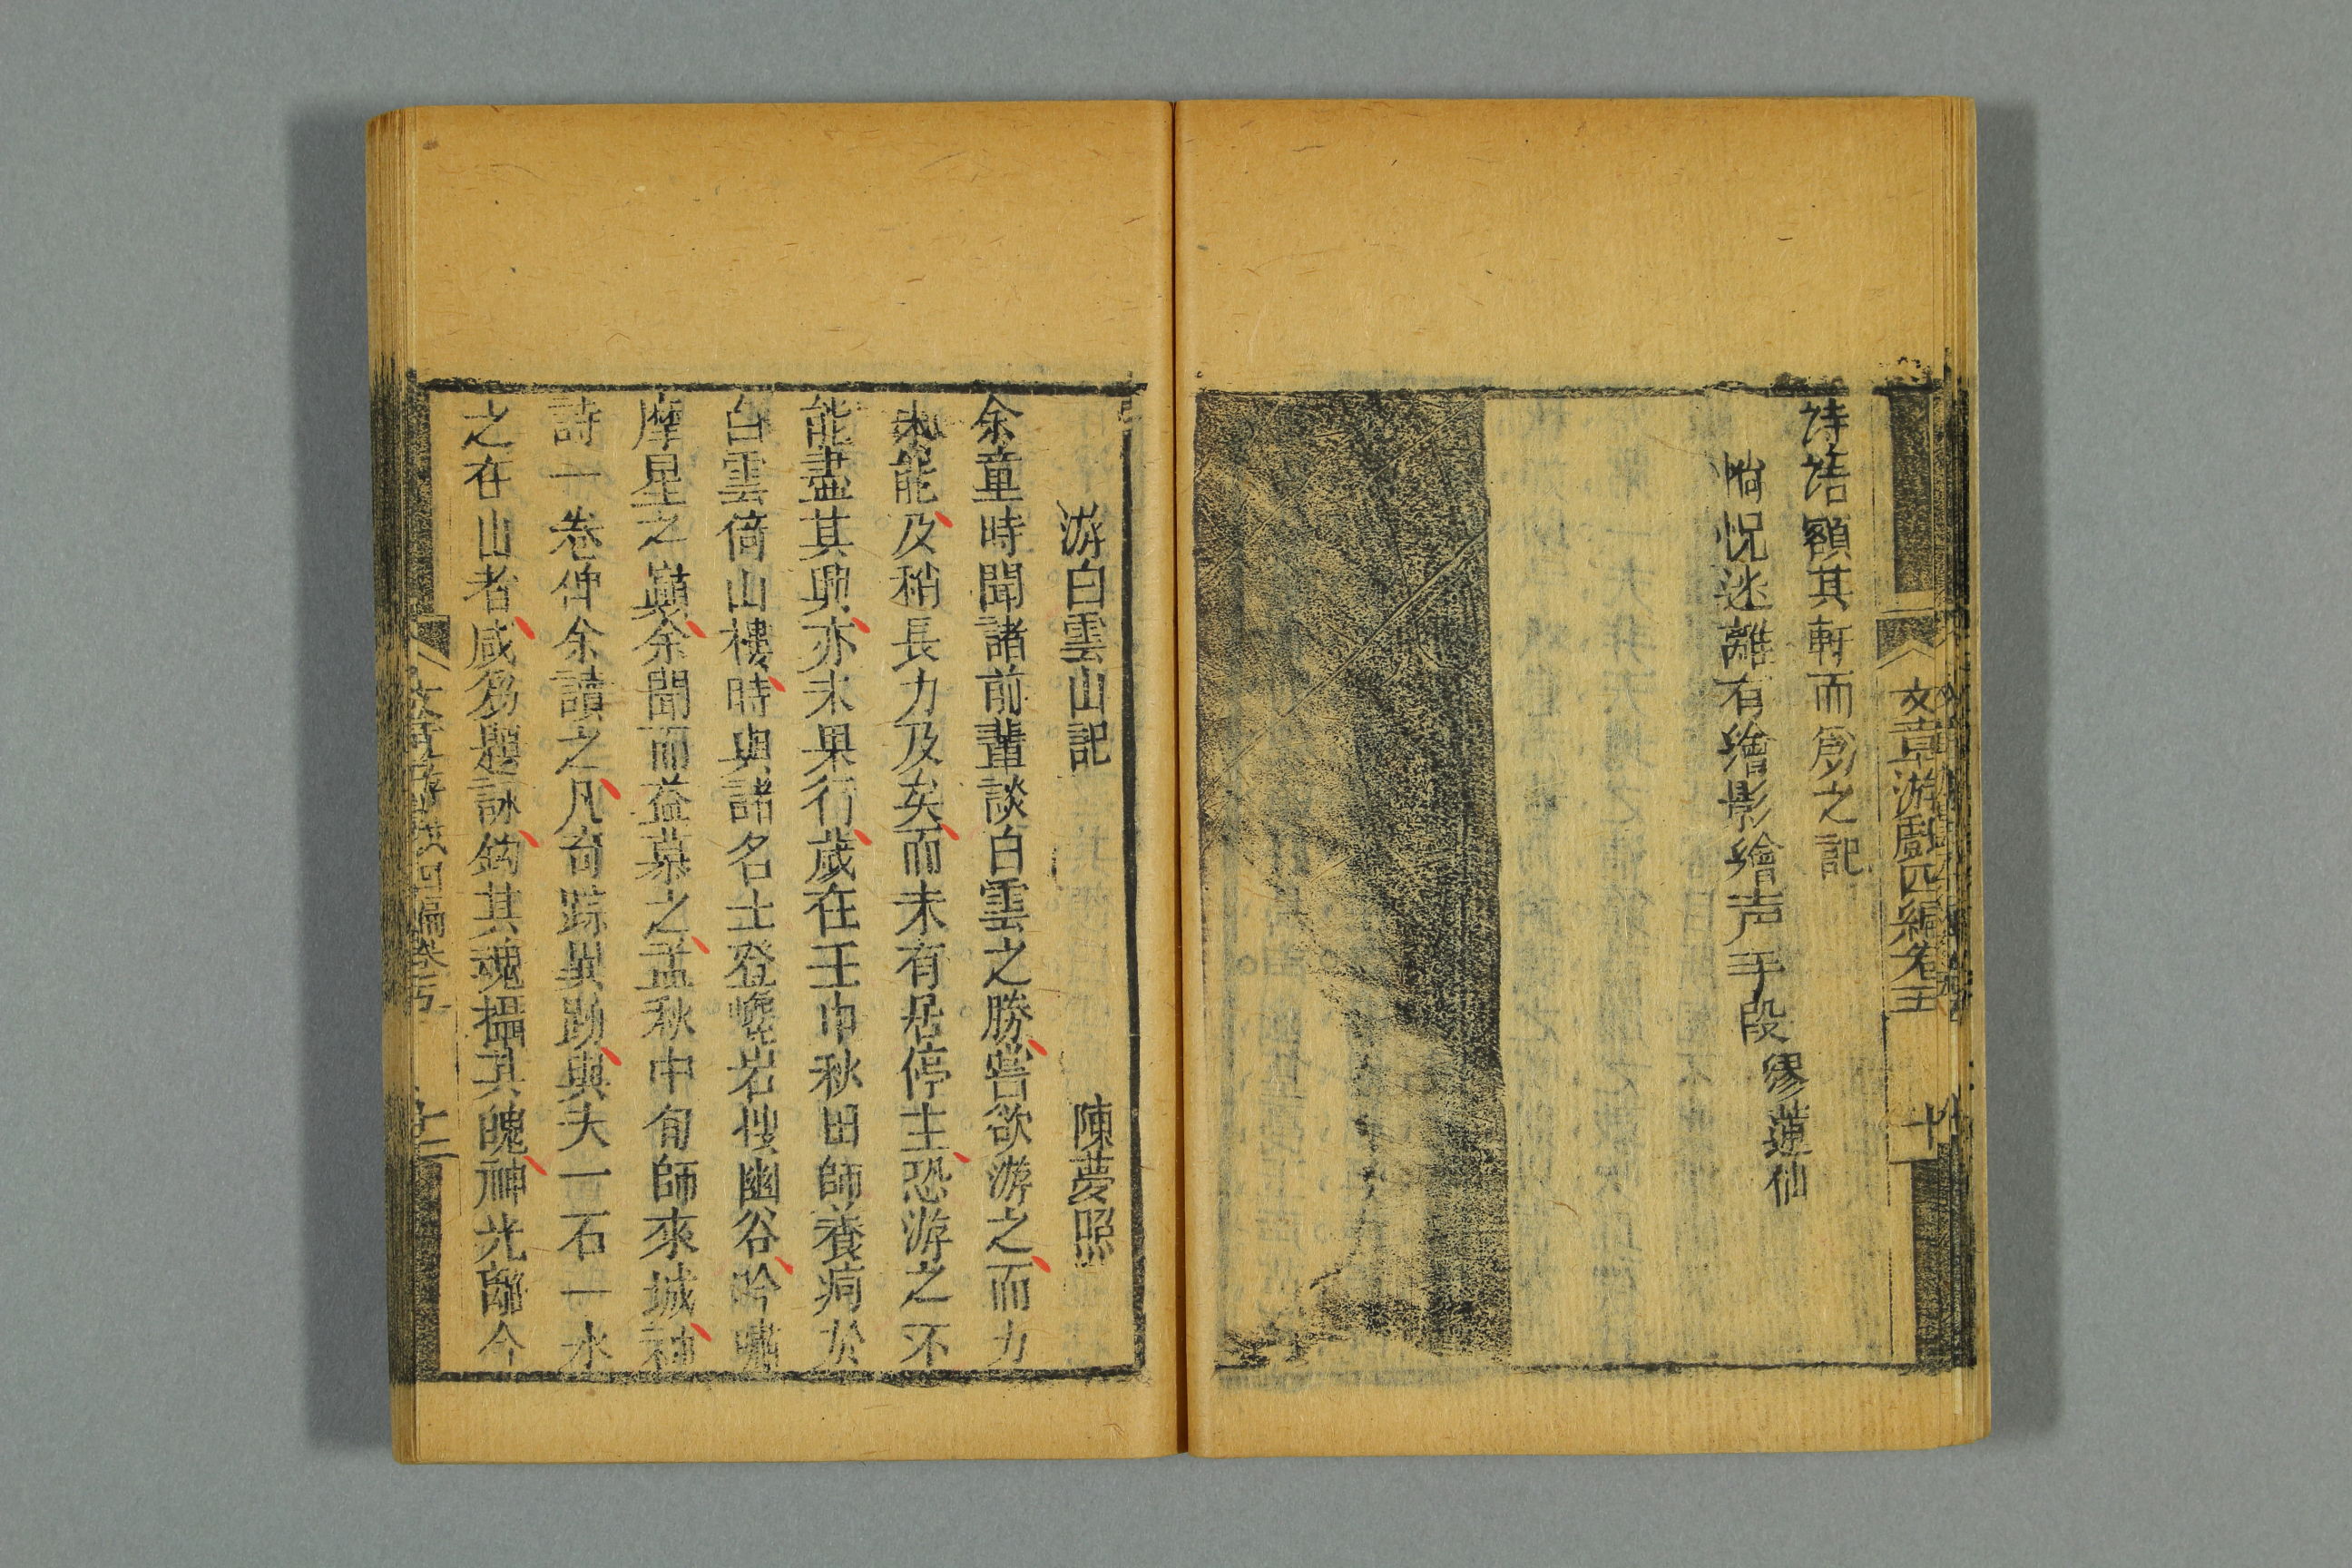 文章游戲四編卷五
十
詩語額其軒而爲之記
惝怳迷離有繪影繪声手段 繆蓮仙
游白雲山記 陳夢照
余童時聞諸前輩談白雲之勝嘗欲游之而力
未能及稍長力及矣而未有居停主恐游之不
能盡其興亦未果行歲在壬申秋田師養疴於
白雲倚山樓時與諸名士登巉岩搜幽谷吟嘯
摩星之巔余聞而益慕之孟秋中旬師來城袖
詩一卷俾余讀之凡奇踪異跡與夫一石一水
之在山者咸爲題詠鈎其魂攝其魄神光離合
文章游戲四編卷五
十二